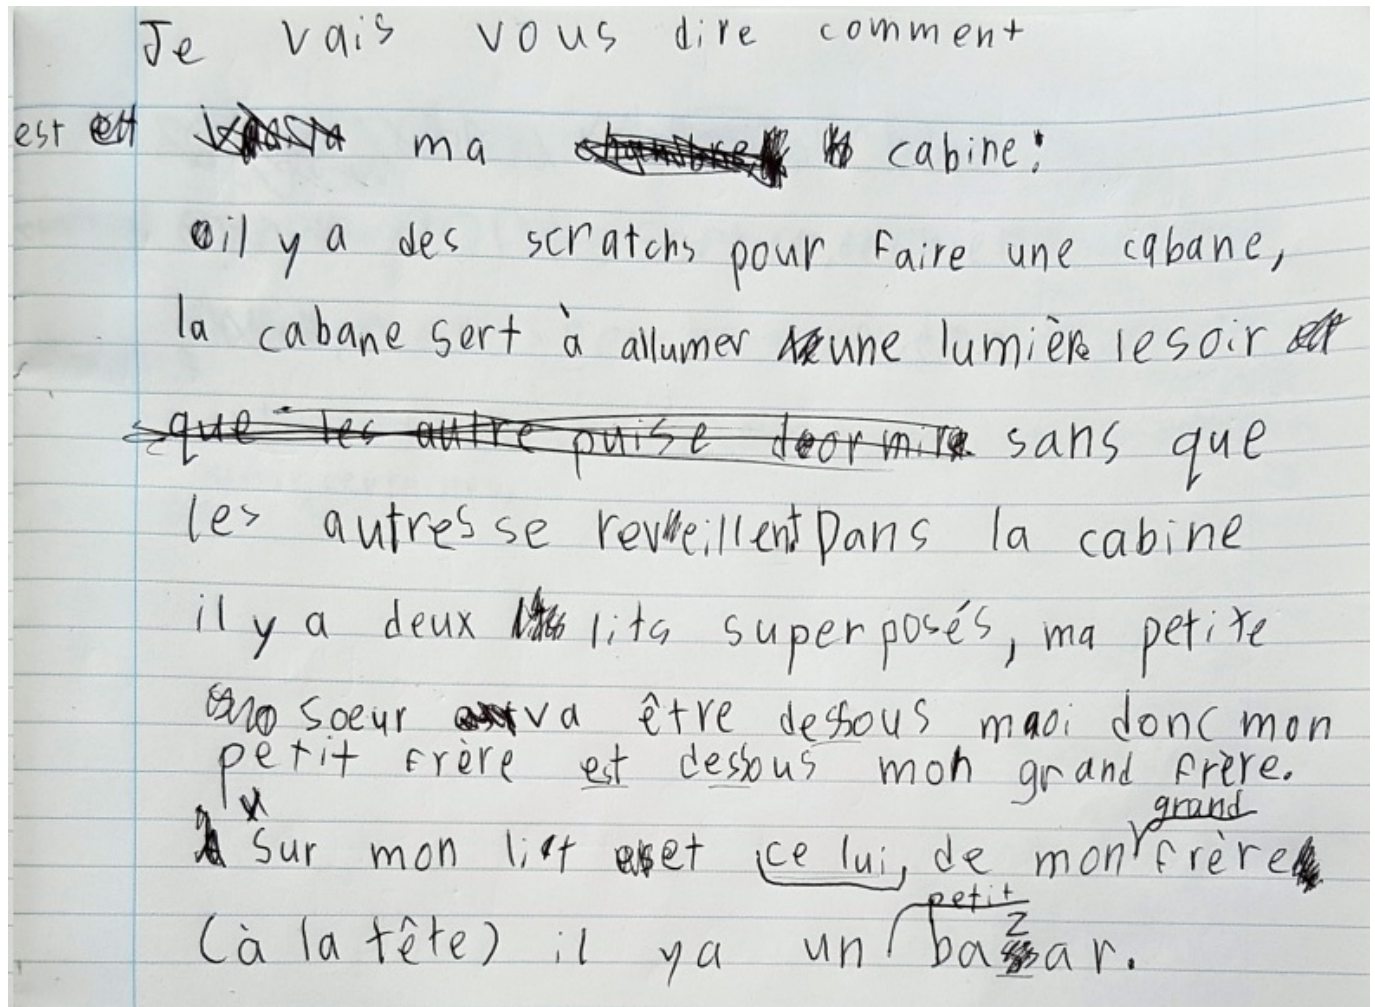 Je vais vous dire comment
est ma cabine:
il y a des scratchs pour faire une cabane,
la cabane sert à allumer une lumière le soir
que les autre puise dormir sans que
les autres se reveillent Dans la cabine
il y a deux lits superposés, ma petite
soeur va être dessous moi donc mon
petit frère est dessous mon grand frère.
Sur mon lit et celui, de mon grand frère
(à la tête) il ya un petit bazar.